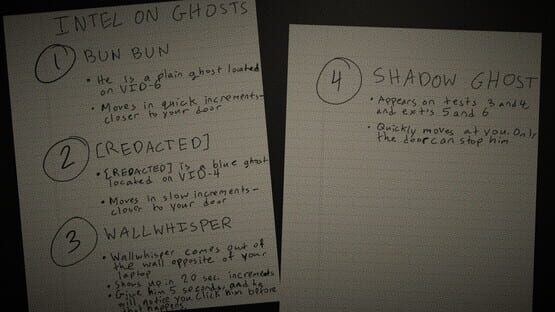 INTEL ON GHOSTS
1 BUN BUN
• He is a plain ghost located
on VID-6
• Moves in quick increments-
closer to your door
2 [REDACTED]
• [REDACTED] is a blue ghost
located on VID-4
• Moves in slow increments-
closer to your door
3 WALLWHISPER
• Wallwhisper comes out of
the wall opposite of your
laptop
• Shows up in 20 sec. increments
• Give him 5 seconds, and he
will notice you. Click him before
that happens.
4 SHADOW GHOST
• Appears on tests 3 and 4,
and exit's 5 and 6
• Quickly moves at you. Only
the door can stop him